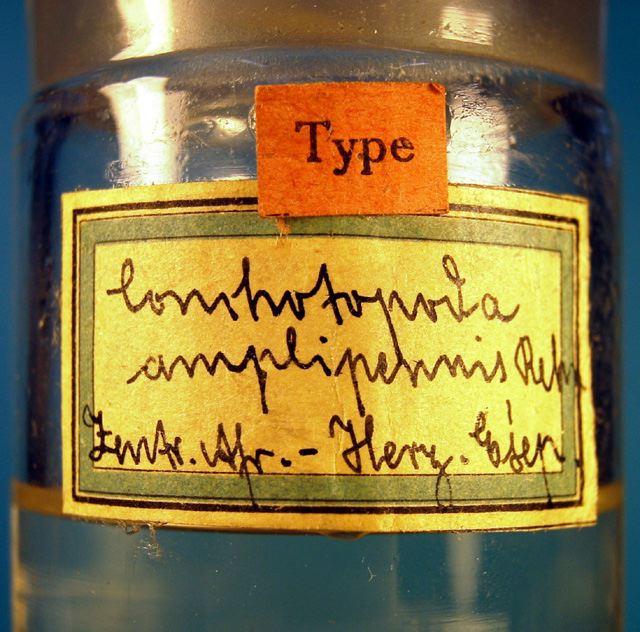 Type
Conchotopoda
amplipennis Rehn
Zentr. Afr. - Herz.